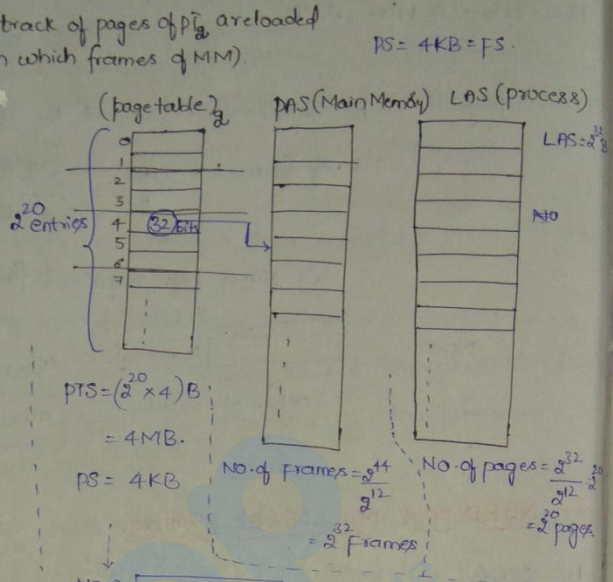 track of pages of P1 2 are loaded
n which frames of MM).
PS = 4KB = FS.
(page table)2
PAS (Main Memory)
LAS (process)
LAS = 2^32 B
0
1
2
3
4
5
6
7
2^20 entries
32 bits
NO
PTS = (2^20 × 4) B
= 4MB.
PS = 4KB
NO. of frames = 2^44
2^12
= 2^32 Frames
NO. of pages = 2^32 = 2^20
2^12
= 2^20 pages.